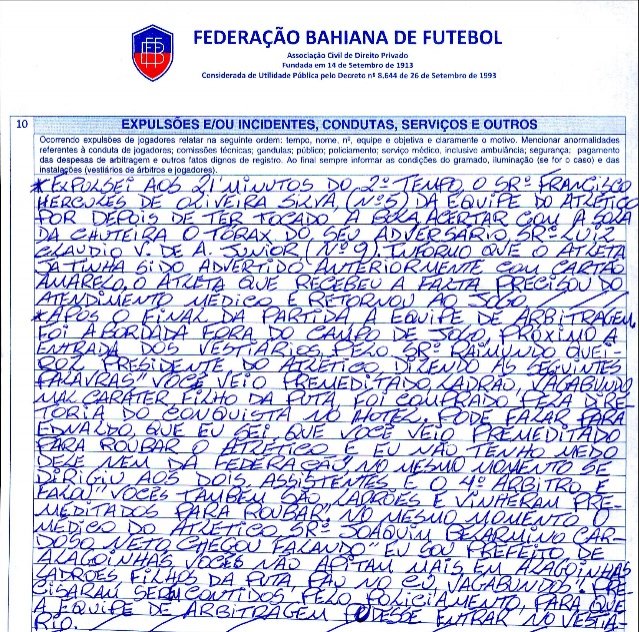 FEDERAÇÃO BAHIANA DE FUTEBOL
Associação Civil de Direito Privado
Fundada em 14 de Setembro de 1913
Considerada de Utilidade Pública pelo Decreto nº 8.644 de 26 de Setembro de 1993
10 EXPULSÕES E/OU INCIDENTES, CONDUTAS, SERVIÇOS E OUTROS
Ocorrendo expulsões de jogadores relatar na seguinte ordem: tempo, nome, nº, equipe e objetiva e claramente o motivo. Mencionar anormalidades
referentes à conduta de jogadores; comissões técnicas; gandulas; público; policiamento; serviço médico, inclusive ambulância; segurança; pagamento
das despesas de arbitragem e outros fatos dignos de registro. Ao final sempre informar as condições do gramado, iluminação (se for o caso) e das
instalações (vestiários de árbitros e jogadores).
*EXPULSEI AOS 21 MINUTOS DO 2º TEMPO, O SRº FRANCISCO
HERCULES DE OLIVEIRA SILVA, (Nº5) DA EQUIPE DO ATLÉTICO
POR DEPOIS DE TER TOCADO A BOLA ACERTAR COM A SOLA
DA CHUTEIRA O TÓRAX DO SEU ADVERSARIO SRº LUIZ
CLAUDIO V. DE A. JUNIOR, (Nº9). INFORMO QUE O ATLETA
JA TINHA SIDO ADVERTIDO ANTERIORMENTE COM CARTÃO
AMARELO, O ATLETA QUE RECEBEU A FALTA PRECISOU DO
ATENDIMENTO MEDICO E RETORNOU AO JOGO
*APOS O FINAL DA PARTIDA A EQUIPE DE ARBITRAGEM
FOI ABORDADA FORA DO CAMPO DE JOGO, PRÓXIMO A
ENTRADA DOS VESTIÁRIOS PELO SRº RAIMUNDO QUEI-
ROZ PRESIDENTE DO ATLÉTICO, DIZENDO AS SEGUINTES
PALAVRAS" VOCÊ VEIO PREMEDITADO, LADRÃO, VAGABUNDO
MAL CARATER FILHO DA PUTA, FOI COMPRADO PELA DIRE
TORIA DO CONQUISTA NO HOTEL, PODE FALAR PARA
EDNALDO QUE EU SEI QUE VOCÊ VEIO PREMEDITADO
PARA ROUBAR O ATLÉTICO E EU NÃO TENHO MEDO
DELE NEM DA FEDERAÇÃO, NO MESMO MOMENTO SE
DIRIGIU AOS DOIS ASSISTENTES E O 4º ARBITRO E
FALOU "VOCÊS TAMBÉM SÃO LADRÕES E VINHERAM PRE-
MEDITADOS PARA ROUBAR" NO MESMO MOMENTO O
MEDICO DO ATLÉTICO SRº JOAQUIM BELARMINO CAR-
DOSO NETO CHEGOU FALANDO" EU SOU PREFEITO DE
ALAGOINHAS VOCÊS NÃO APITAM MAIS EM ALAGOINHAS
LADRÕES FILHOS DA PUTA PAU NO CU, VAGABUNDOS". PRE-
CISARAM SER CONTIDOS PELO POLICIAMENTO, PARA QUE
A EQUIPE DE ARBITRAGEM PUDESSE ENTRAR NO VESTIÁ-
RIO.